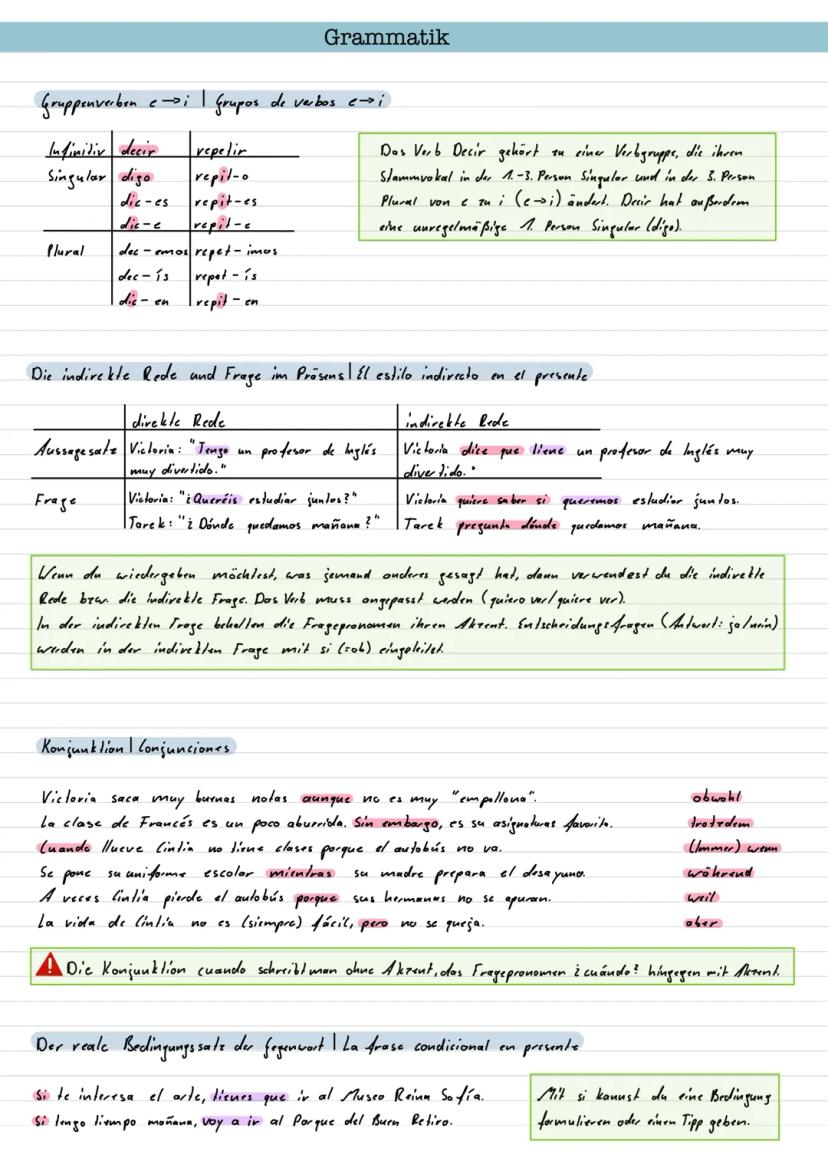 Grammatik
Gruppenverben e→i | Grupos de verbos e→i
Infinitiv decir repetir
Singular digo repit-o
dic-es repit-es
dic-e repit-e
Plural dec-emos repet-imos
dec-ís repet-ís
dic-en repit-en
Das Verb Decir gehört zu einer Verbgruppe, die ihren
Stammvokal in der 1.-3. Person Singular und in der 3. Person
Plural von e zu i (e→i) ändert. Decir hat außerdem
eine unregelmäßige 1. Person Singular (digo).
Die indirekte Rede und Frage im Präsens | El estilo indirecto en el presente
direkte Rede indirekte Rede
Aussagesatz Victoria: "Tengo un profesor de Inglés Victoria dice que tiene un profesor de Inglés muy
muy divertido." divertido."
Frage Victoria: "¿Queréis estudiar juntos?" Victoria quiere saber si queremos estudiar juntos.
Tarek: "¿Dónde quedamos mañana?" Tarek pregunta dónde quedamos mañana.
Wenn du wiedergeben möchtest, was jemand anderes gesagt hat, dann verwendest du die indirekte
Rede bzw. die indirekte Frage. Das Verb muss angepasst werden (quiero ver/quiere ver).
In der indirekten Frage behalten die Fragepronomen ihren Akzent. Entscheidungsfragen (Antwort: ja/nein)
werden in der indirekten Frage mit si (=ob) eingeleitet.
Konjunktion | Conjunciones
Victoria saca muy buenas notas aunque no es muy "empollona". obwohl
La clase de Francés es un poco aburrida. Sin embargo, es su asignaturas favorita. trotzdem
Cuando llueve Cintia no tiene clases porque el autobús no va. (Immer) wenn
Se pone su uniforme escolar mientras su madre prepara el desayuno. während
A veces Cintia pierde el autobús porque sus hermanas no se apuran. weil
La vida de Cintia no es (siempre) fácil, pero no se queja. aber
Die Konjunktion cuando schreibt man ohne Akzent, das Fragepronomen ¿cuándo? hingegen mit Akzent.
Der reale Bedingungssatz der Gegenwart | La frase condicional en presente
Si te interesa el arte, tienes que ir al Museo Reina Sofía.
Si tengo tiempo mañana, voy a ir al Parque del Buen Retiro.
Mit si kannst du eine Bedingung
formulieren oder einen Tipp geben.